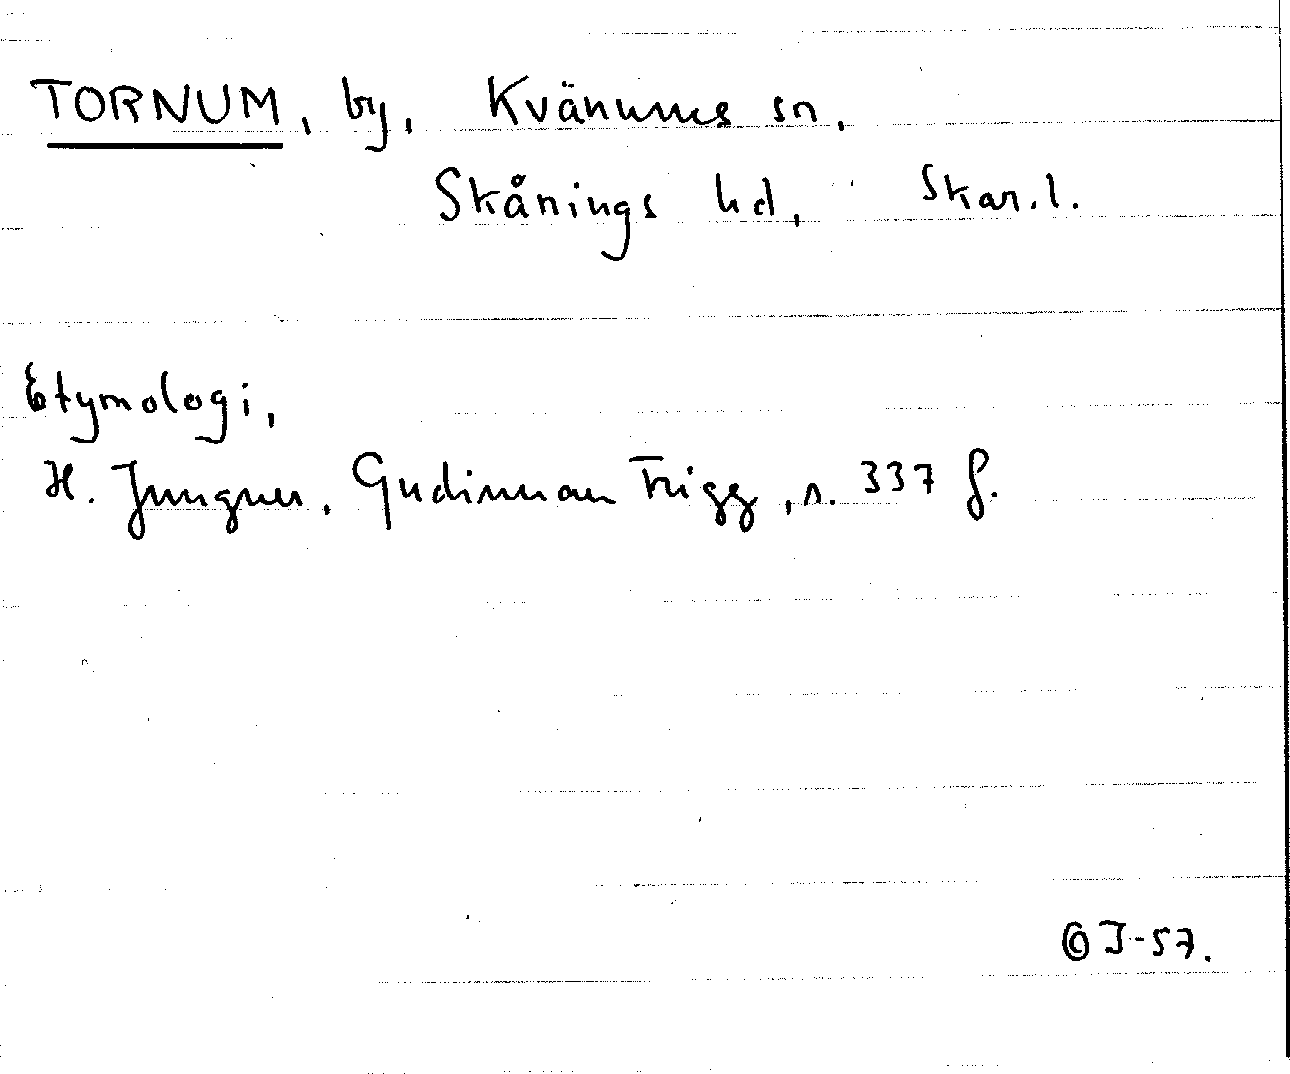 TORNUM, by, Kvänums sn,
Skånings hd, Skar.l.
Etymologi,
H. Jungner, Gudinnan Frigg, s. 337 f.
© J-57.